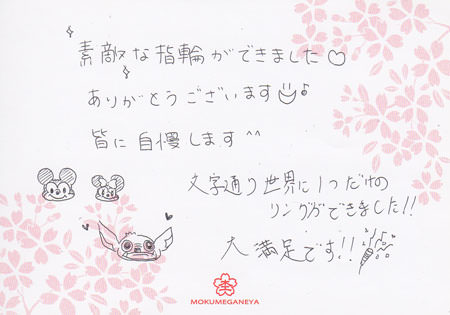 素敵な指輪ができました♡
ありがとうございます☺♪
皆に自慢します^^
文字通り世界に1つだけの
リングができました!!
大満足です!!
MOKUMEGANEYA